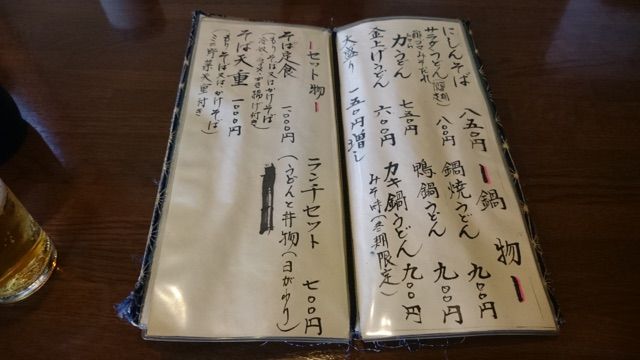 にしんそば 八五〇円
サラダうどん(夏期限定) 八〇〇円
力うどん 七五〇円
釜上げうどん 六〇〇円
大盛り 一五〇円増し
ー鍋物ー
鍋焼うどん 九〇〇円
鴨鍋うどん 九〇〇円
カキ鍋うどん 九〇〇円
みそ味(冬期限定)
ーセット物ー
そば定食 一〇〇〇円
(もりそば又はかけそば
かき揚げ付き)
そば天重 一〇〇〇円
(もりそば又はかけそば
ミニ野菜天重付き)
ランチセット 七〇〇円
(うどんと丼物(日がわり)